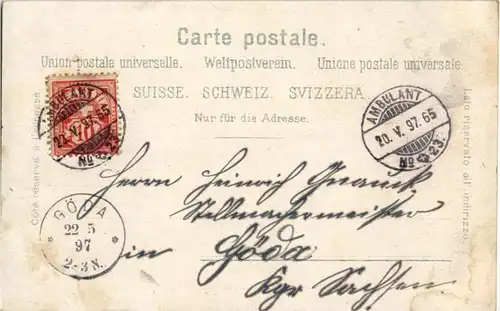 Carte postale.
Union postale universelle. Weltpostverein. Unione postale universale
SUISSE. SCHWEIZ. SVIZZERA.
Nur für die Adresse.
Côté réservé à l'adresse.
Lato riservato all'indirizzo.
AMBULANT
20. V. 97-65
No 23
AMBULANT
20. V. 97-65
No 23
GÖDA
22 5
97
2-3 N.
Herrn Heinrich
Stellmachermeister
in Göda
Kgr Sachsen.